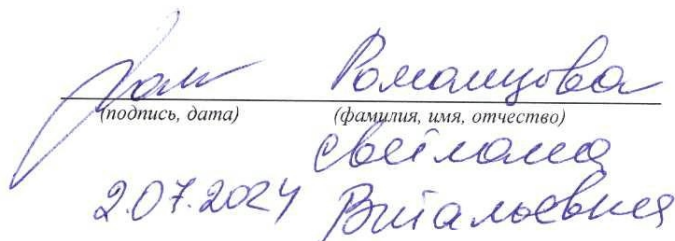 Романцова
(подпись, дата) (фамилия, имя, отчество)
Светлана
2.07.2024 Витальевна